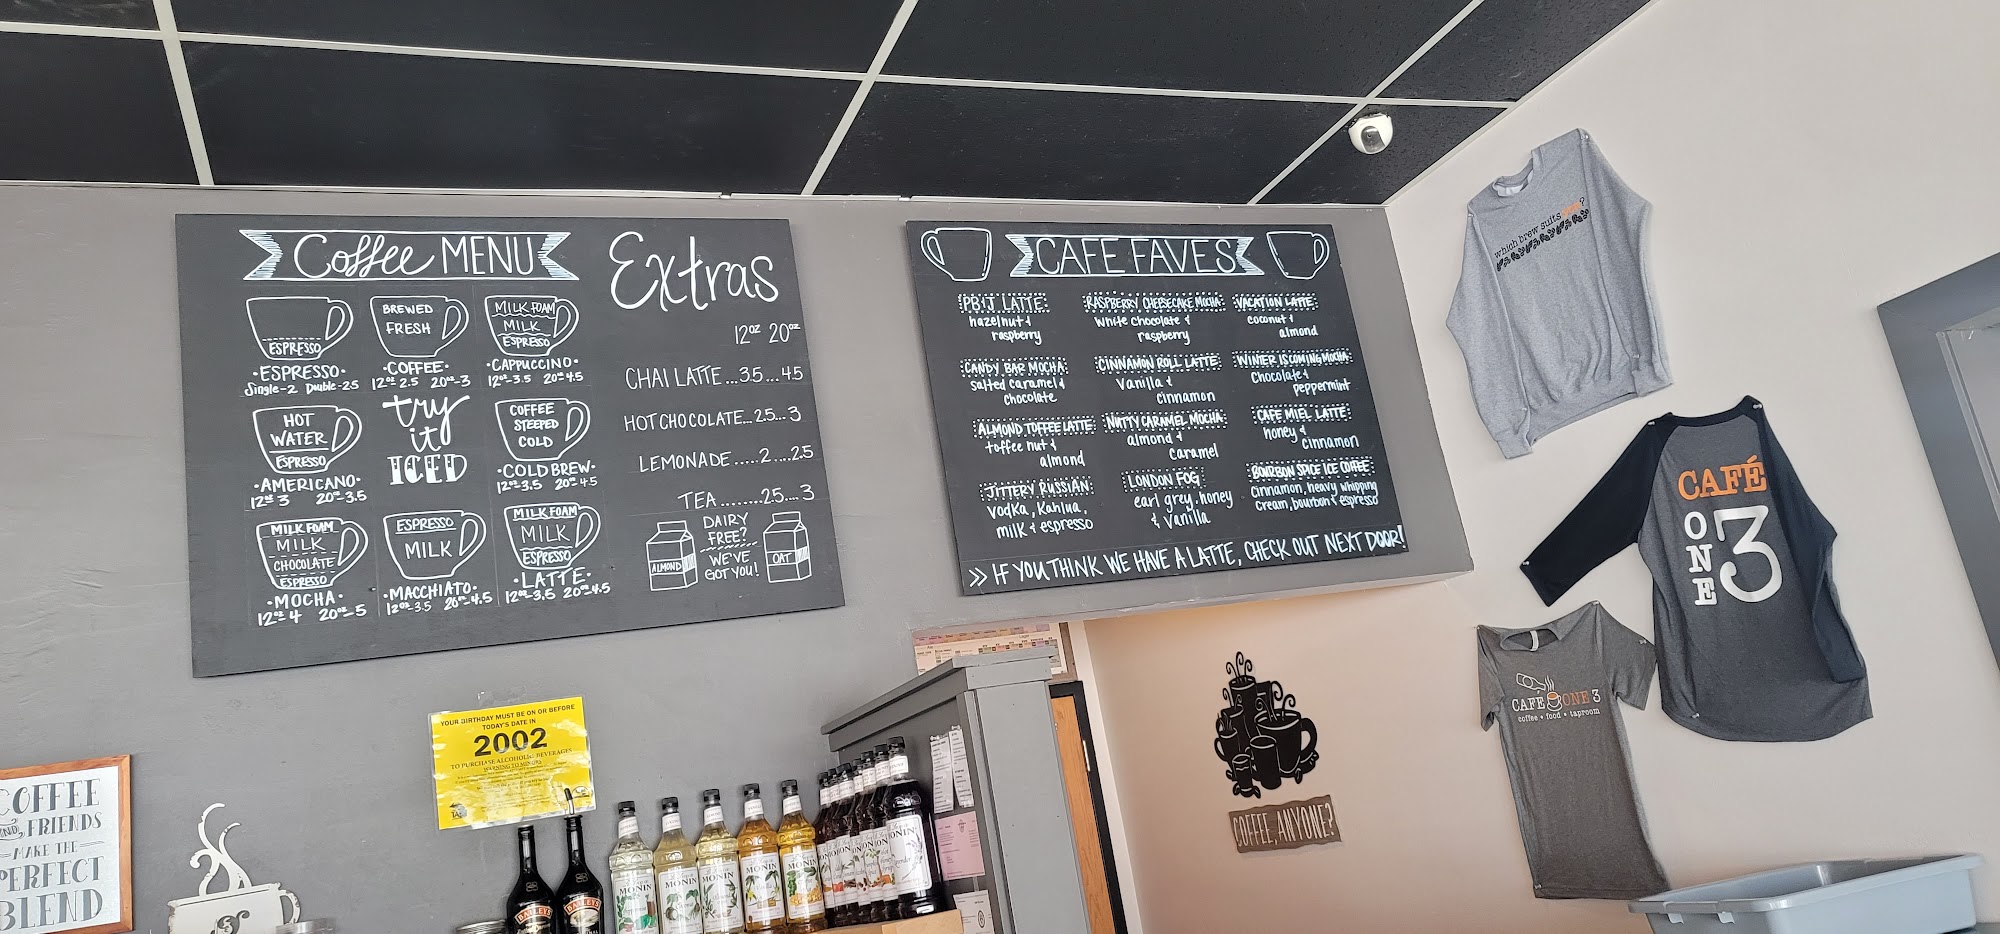 Coffee MENU
ESPRESSO
·ESPRESSO·
Single-2 Double-2.5
BREWED
FRESH
·COFFEE·
12oz 2.5 20oz-3
MILK FOAM
MILK
ESPRESSO
·CAPPUCCINO·
12oz-3.5 20oz 4.5
HOT
WATER
ESPRESSO
·AMERICANO·
12oz 3 20oz-3.5
try
it
ICED
COFFEE
STEEPED
COLD
·COLD BREW·
12oz-3.5 20oz 4.5
MILK FOAM
MILK
CHOCOLATE
ESPRESSO
·MOCHA·
12oz 4 20oz-5
ESPRESSO
MILK
·MACCHIATO·
12oz-3.5 20oz-4.5
MILK FOAM
MILK
ESPRESSO
·LATTE·
12oz-3.5 20oz-4.5
Extras
12oz 20oz
CHAI LATTE...3.5...4.5
HOT CHOCOLATE...2.5...3
LEMONADE.....2....2.5
TEA........2.5....3
ALMOND
DAIRY
FREE?
WE'VE
GOT YOU!
OAT
CAFE FAVES
PB&J LATTE
hazelnut &
raspberry
RASPBERRY CHEESECAKE MOCHA
white chocolate &
raspberry
VACATION LATTE
coconut &
almond
CANDY BAR MOCHA
salted caramel &
chocolate
CINNAMON ROLL LATTE
vanilla &
cinnamon
WINTER IS COMING MOCHA
chocolate &
peppermint
ALMOND TOFFEE LATTE
toffee nut &
almond
NUTTY CARAMEL MOCHA
almond &
caramel
CAFE MIEL LATTE
honey &
cinnamon
JITTERY RUSSIAN
vodka, kahlua,
milk & espresso
LONDON FOG
earl grey, honey
& vanilla
BOURBON SPICE ICE COFFEE
cinnamon, heavy whipping
cream, bourbon & espresso
>> IF YOU THINK WE HAVE A LATTE, CHECK OUT NEXT DOOR!
which brew suits you?
CAFÉ
ONE
3
CAFÉ ONE 3
coffee • food • taproom
COFFEE, ANYONE?
YOUR BIRTHDAY MUST BE ON OR BEFORE
TODAY'S DATE IN
2002
TO PURCHASE ALCOHOLIC BEVERAGES
WARNING TO MINORS
COFFEE
AND FRIENDS
MAKE THE
PERFECT
BLEND
BAILEYS
BAILEYS
MONIN
MONIN
MONIN
MONIN
MONIN
MONIN